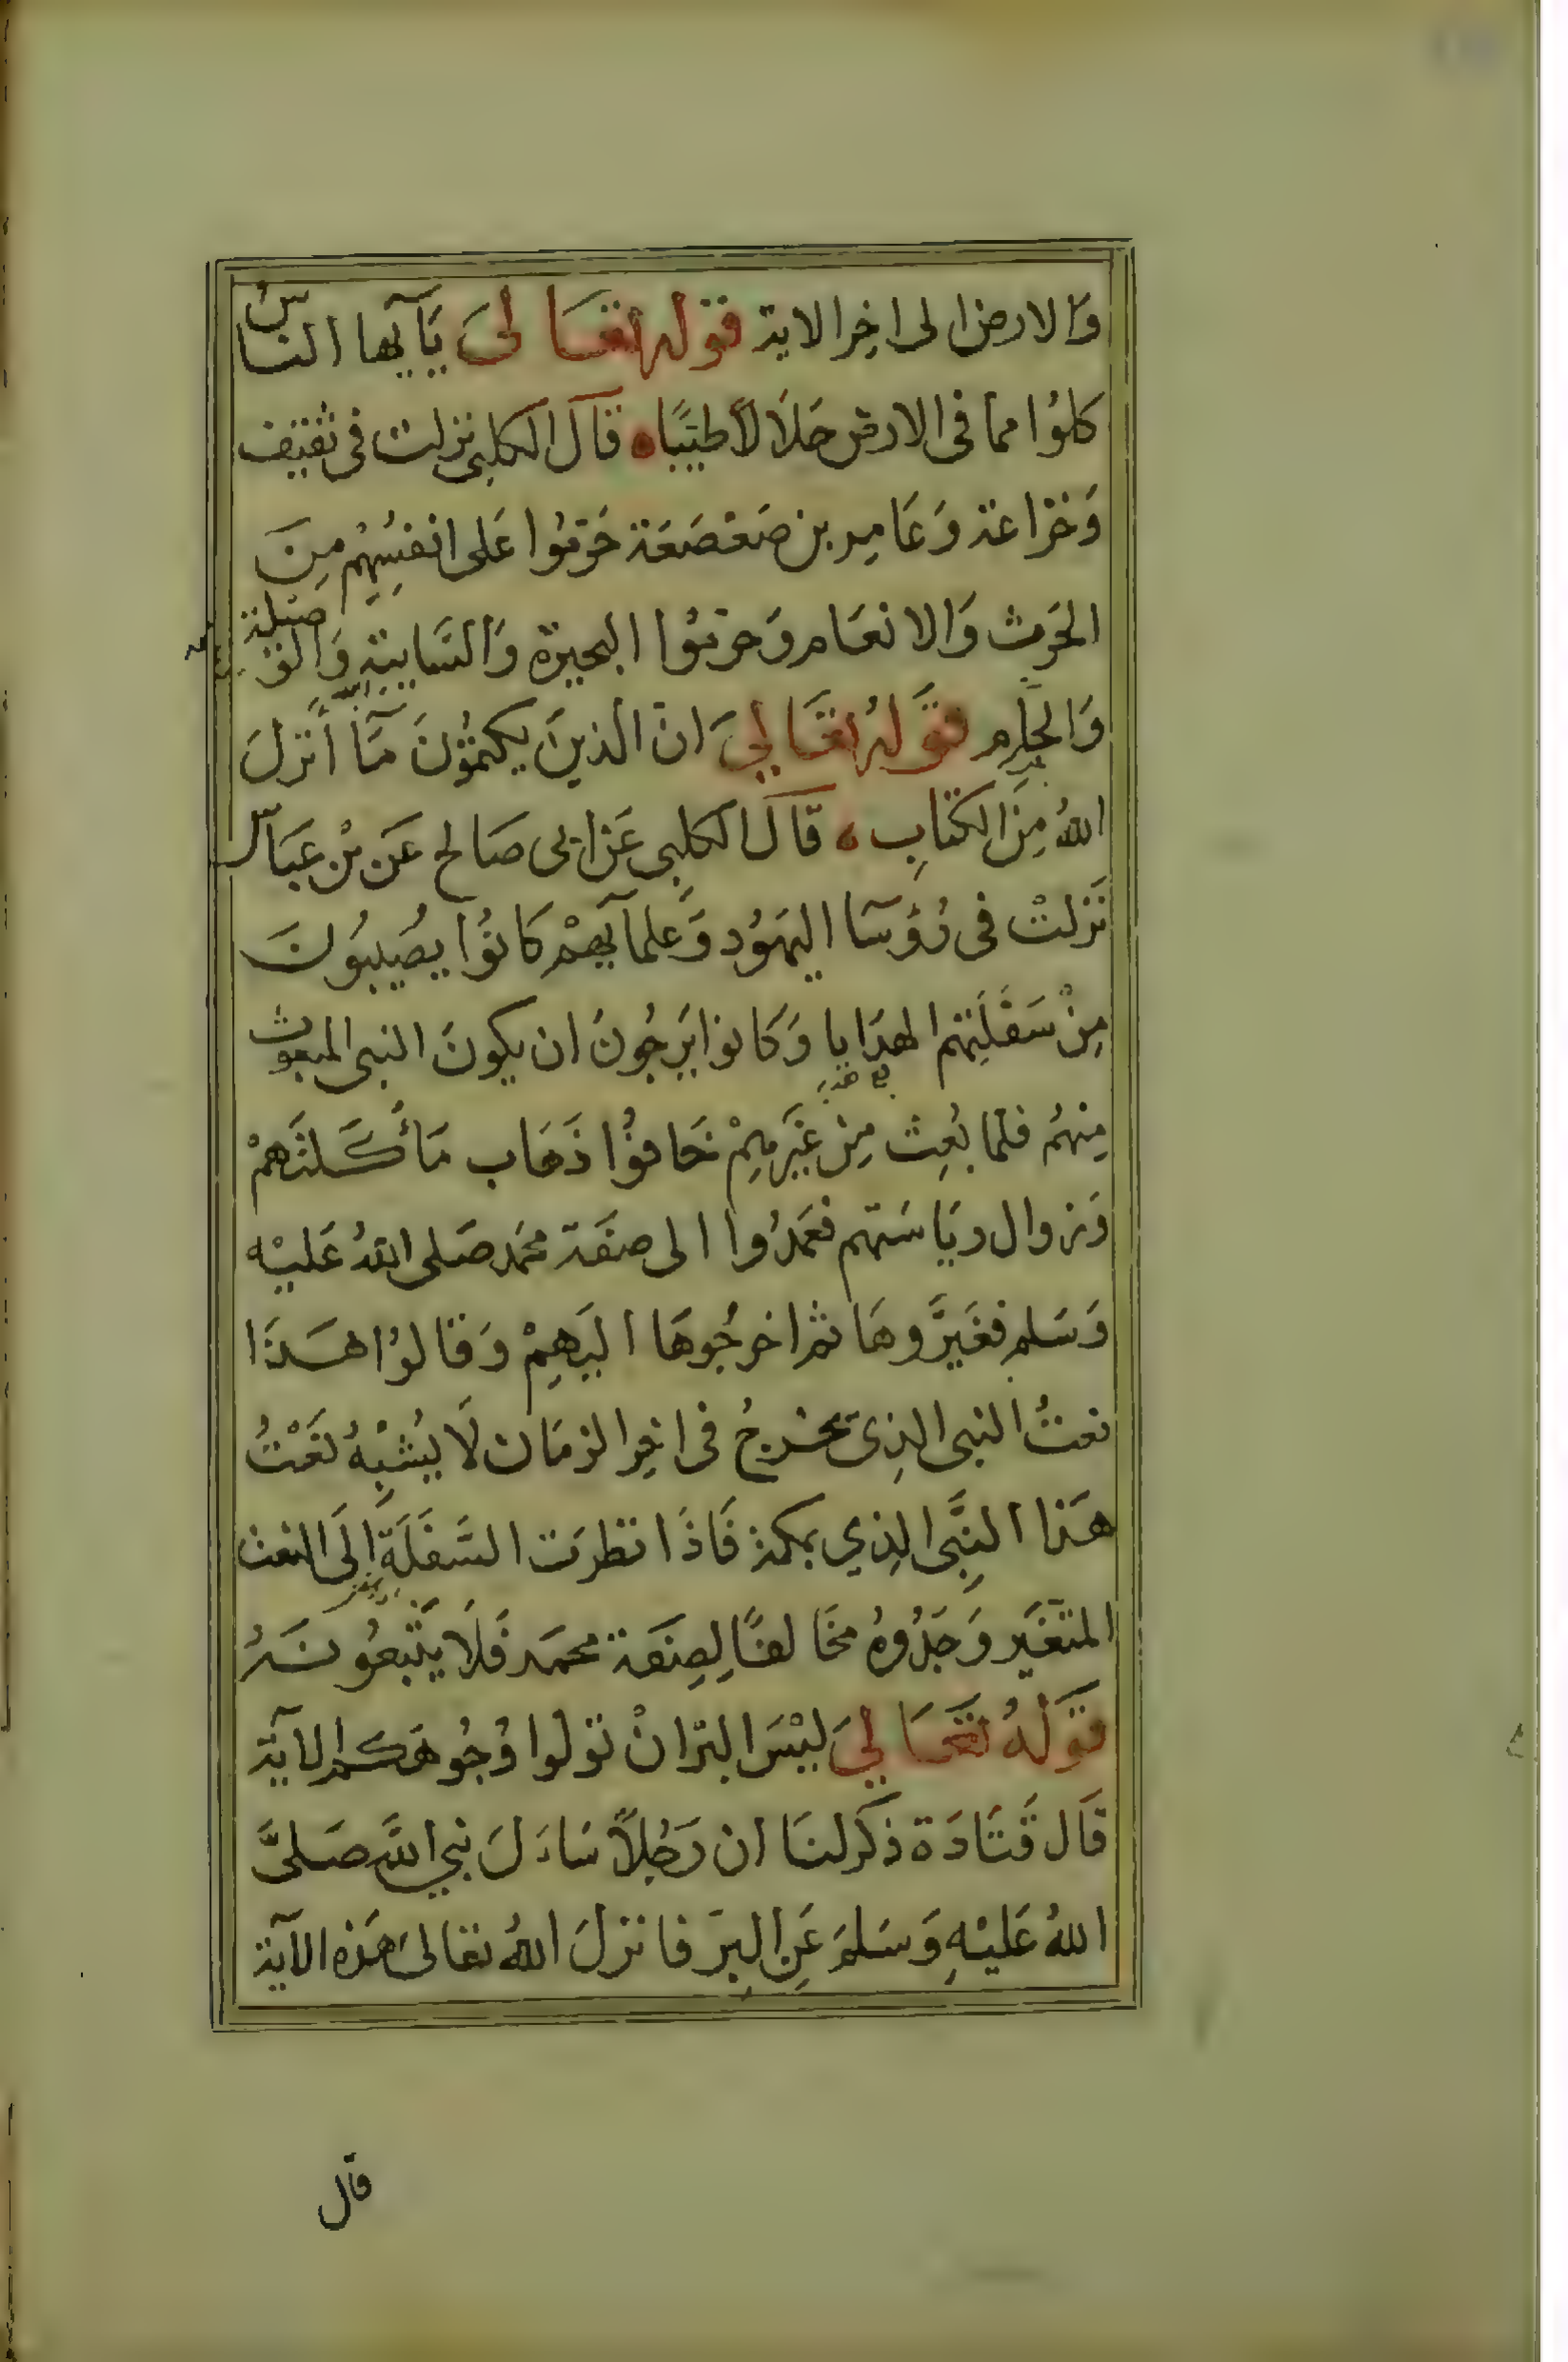 وَالارض الى اخِر الاية قوله تعَالىَ يَآيها الناسُ
كلوُا مما فى الارض حَلَالاً طيّبًا ه قَالَ الكلبى نزلت فى ثقيف
وَخزاعة وَعَامِر بن صَعْصَعَة حَرّمُوا عَلى انفسُِهِمْ مِنَ
الحَرث وَالانعَام وَحرمُوا البحيرة وَالسَّايبَة وَالوَصيلة
وَالحَام قوَلهُ تعَالىَ انَّ الذينَ يكتمُونَ مَآ أنزلَ
اللهُ مِنَ الكتَابِ ه قَالَ الكلبى عَن ابى صَالح عَن بْن عَبَّاس
نَزلتْ فى رُؤسَآ اليهَوُد وَعلمآيهمْ كَانوُا يصُيبُونَ
مِنْ سَفَلَتِهم الهدَايا وَكَانوا يَرجُونَ ان يكونَ النبى المبعوث
مِنهُم فلما بُعِث مِن غَيَرهِمْ خَافوُا ذَهَاب مَأكَلتَهمْ
وَزوال ريَاسَتهم فعَمَدُوا الى صفَة محَمد صَلى اللهُ عَليْه
وَسَلم فغَيَّروهَا ثم اخرجُوهَا اليَهِمْ وَقالوُا هَذَا
نعتُ النبى الذِى يخرجُ فى اخِر الزمَان لَا يُشْبِهُ نَعْتُ
هَذا النبَِّى الذِي بمكة فَاذَا نظرَت السَّفَلَة اِلَى النعت
المتغَير وَجَدُوهُ مخَالفًا لِصِفَة محمَد فَلَا يَتْبعُونَهُ
قوَلهُ تعَالىَ ليْسَ البرّ انْ تولوا وُجُوهَكم الآية
قَال قَتَادَة ذكر لنَا ان رَجُلاً سَاءَلَ نبي اللَّه صَلىَّ
اللهُ عَليْهِ وَسَلمَ عَن البِرّ فانزلَ اللهُ تعالىَ هَذه الآية
قال